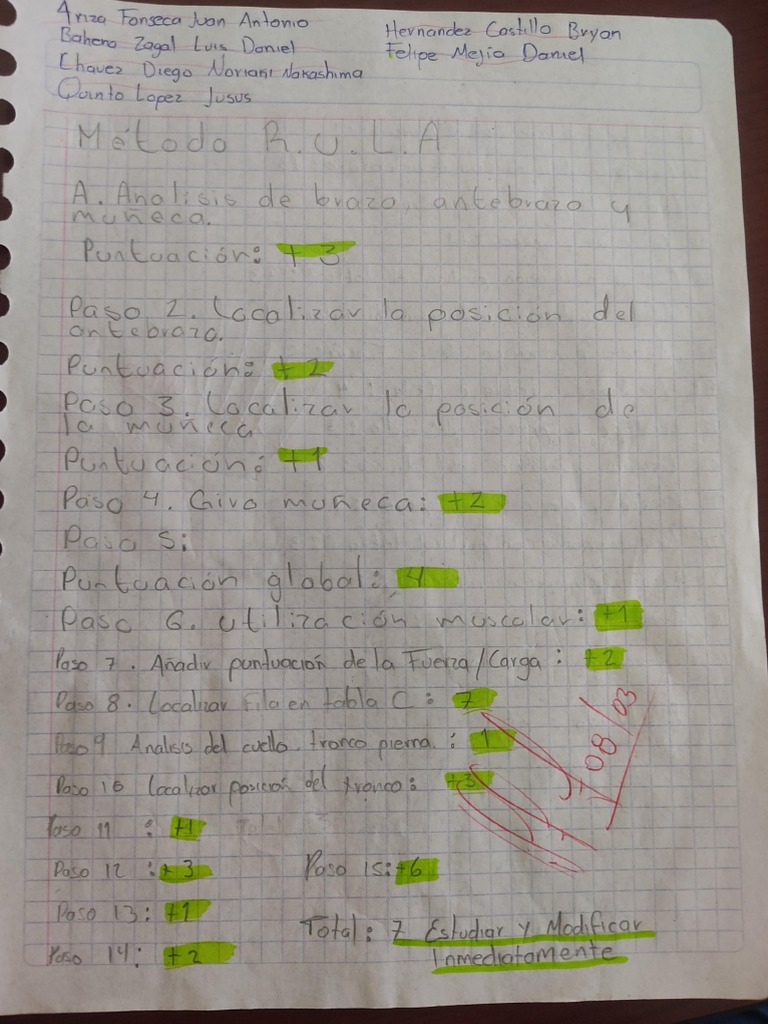 Ariza Fonseca Juan Antonio
Baheno Zagal Luis Daniel
Chavez Diego Noriaki Nakashima
Quinto Lopez Jusus
Hernandez Castillo Bryan
Felipe Mejia Daniel
Método R.U.L.A
A. Analisis de brazo, antebrazo y
muñeca.
Puntuación: +3
Paso 2. Localizar la posición del
antebrazo.
Puntuación: +2
Paso 3. Localizar la posición de
la muñeca
Puntuación: +1
Paso 4. Giro muñeca: +2
Paso 5:
Puntuación global: 4
Paso 6. utilización muscolar: +1
Paso 7. Añadir puntuación de la Fuerza/Carga: +2
Paso 8. Localizar Fila en tabla C: 7
Paso 9 Analisis del cuello, tronco pierna: 1
Paso 10 Localizar posición del tronco: +3
Paso 11 : +1
Paso 12 : +3
Paso 15: +6
Paso 13: +1
Paso 14: +2
Total: 7 Estudiar y Modificar
Inmediatamente
08/03